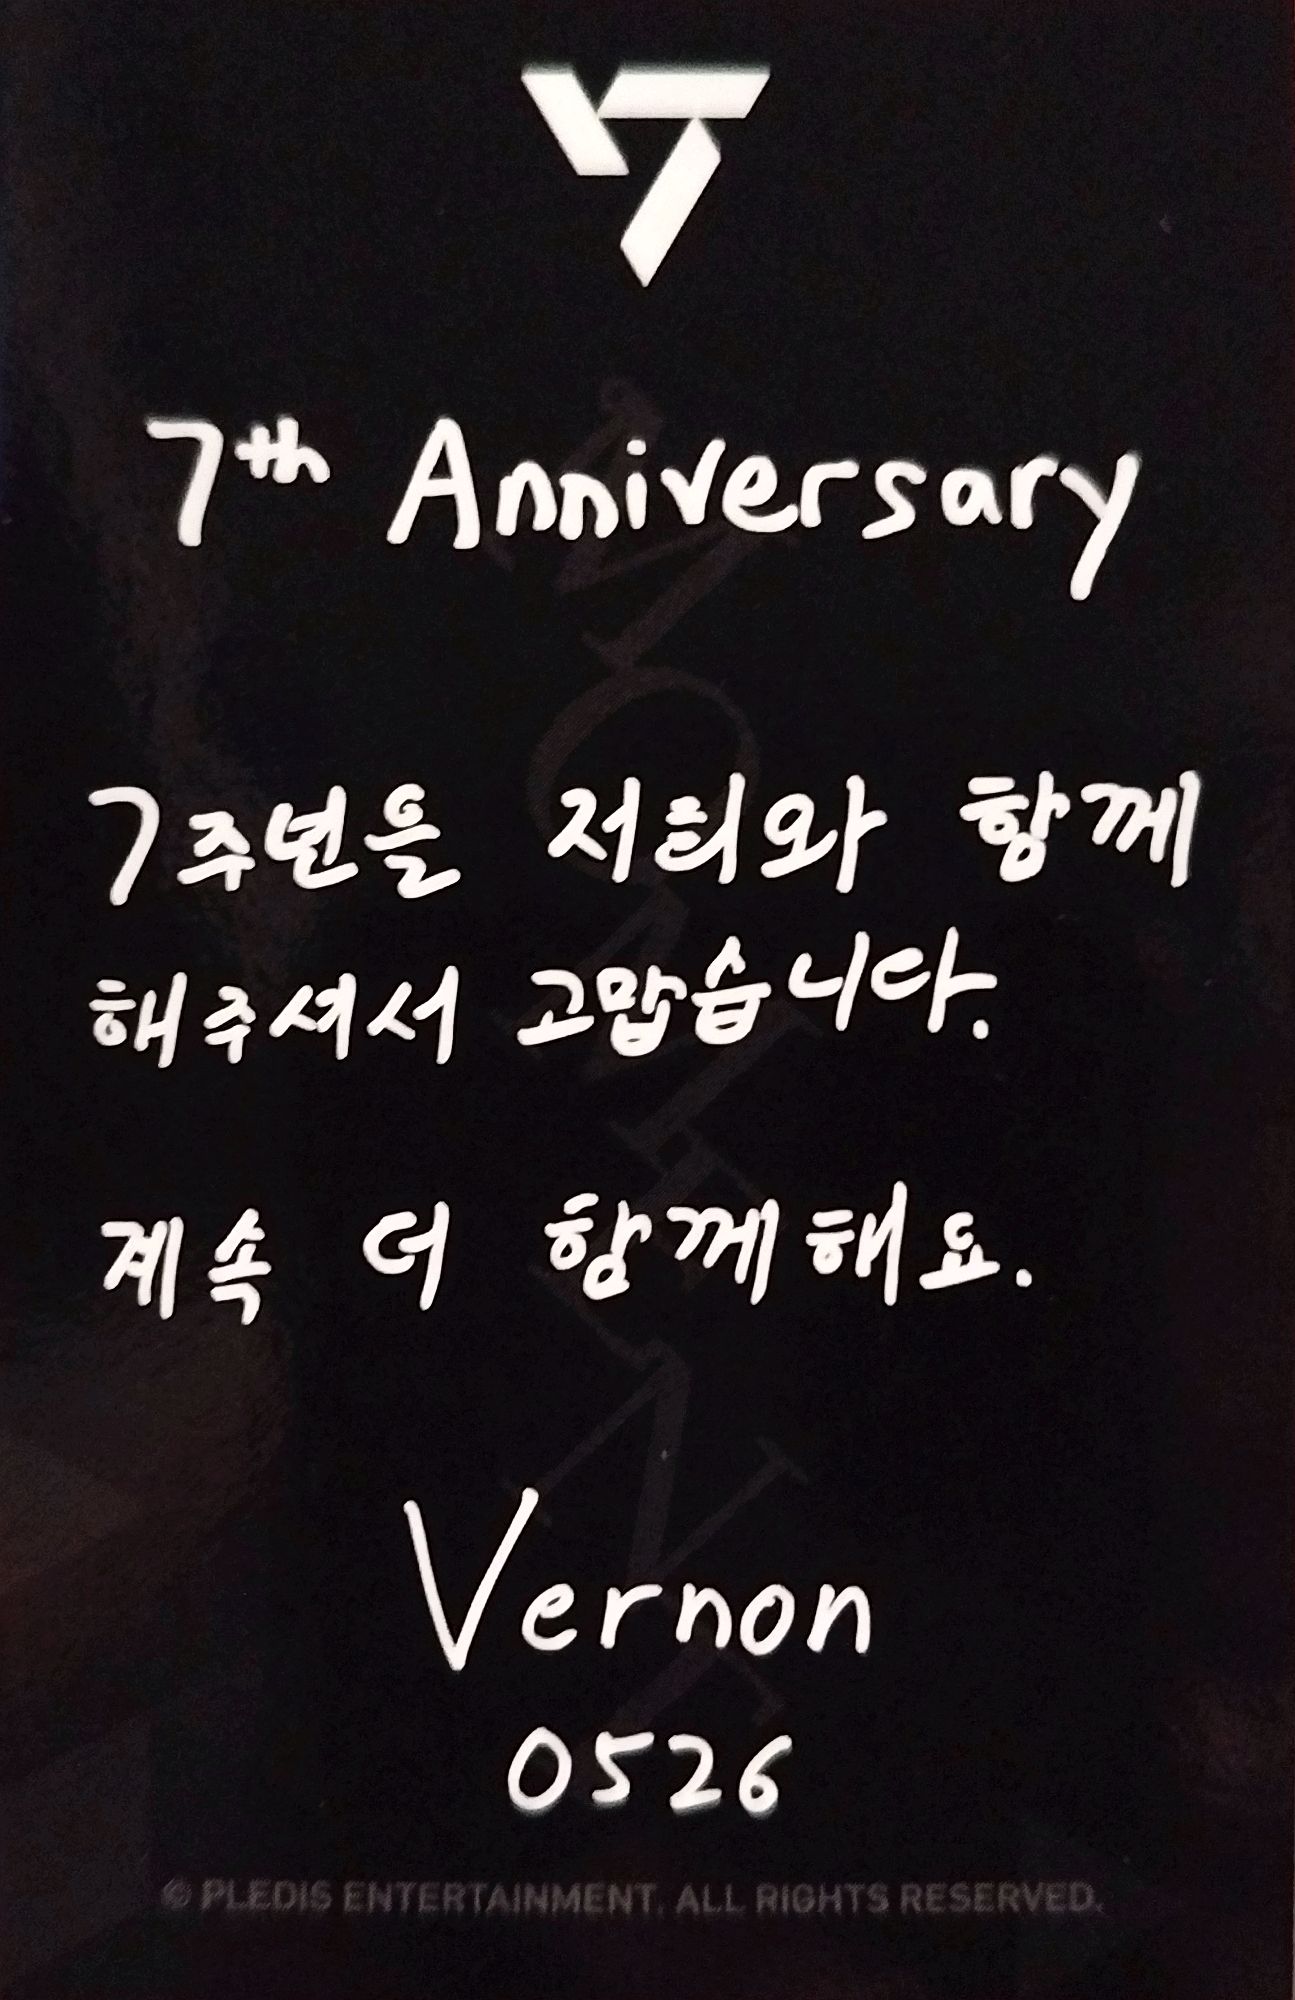 7th Anniversary
7주년을 저희와 함께
해주셔서 고맙습니다.
계속 더 함께해요.
Vernon
0526
© PLEDIS ENTERTAINMENT. ALL RIGHTS RESERVED.